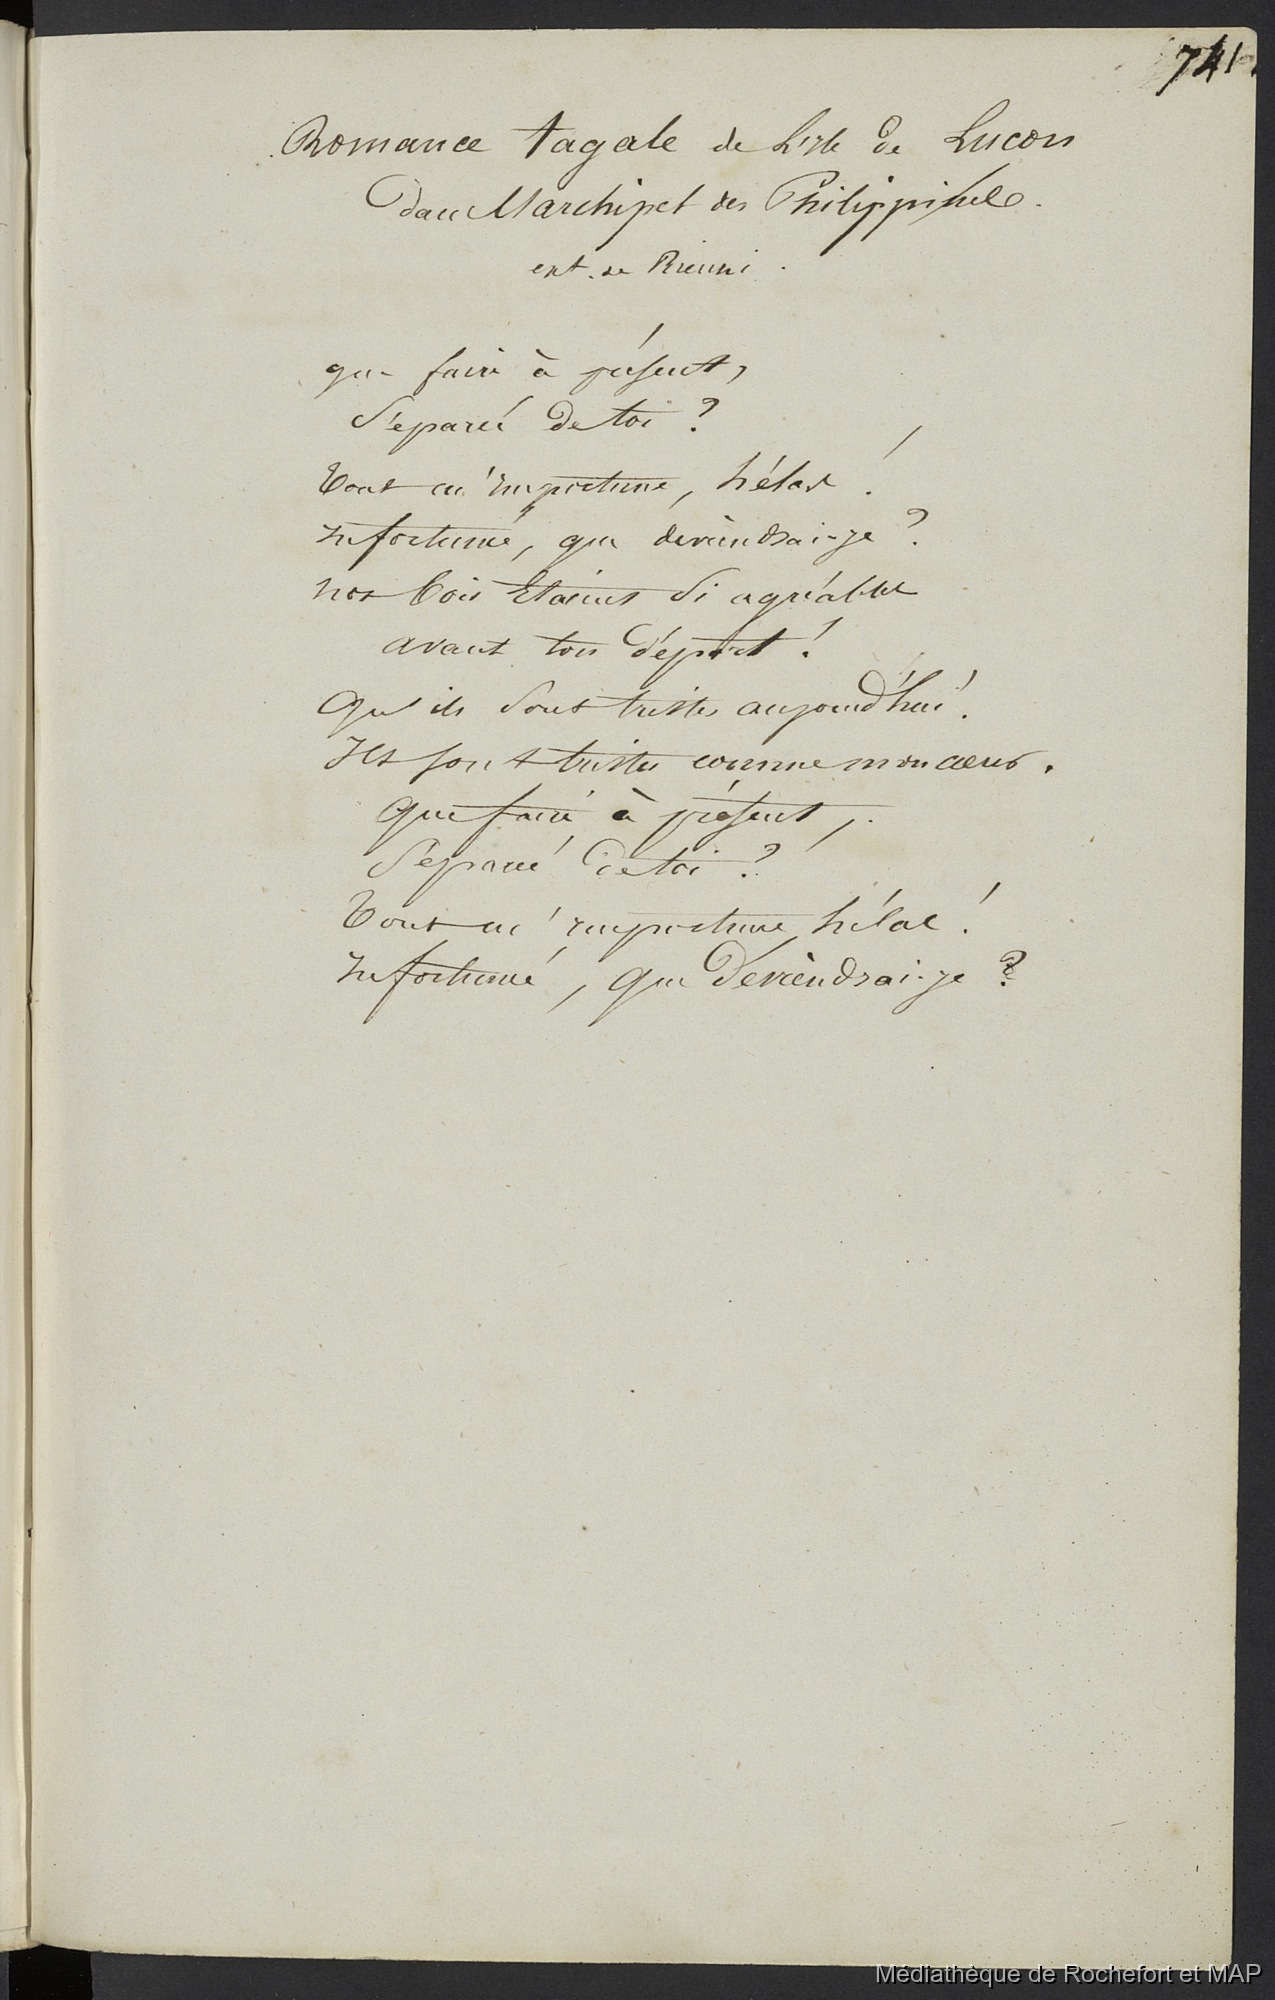 741.
Romance tagale de L'isle de Luçon
dans l'archipel des Philippines.
ext. de Rienzi.
que faire à présent,
Séparé de toi ?
Tout m'importune, hélas !
Infortuné, que deviendrai-je ?
nos bois étaient si agréables
avant ton départ !
Qu'ils sont tristes aujourd'hui !
Ils sont tristes comme mon cœur.
Que faire à présent,
Séparé de toi ?
Tout m'importune, hélas !
Infortuné, que deviendrai-je ?
Médiathèque de Rochefort et MAP